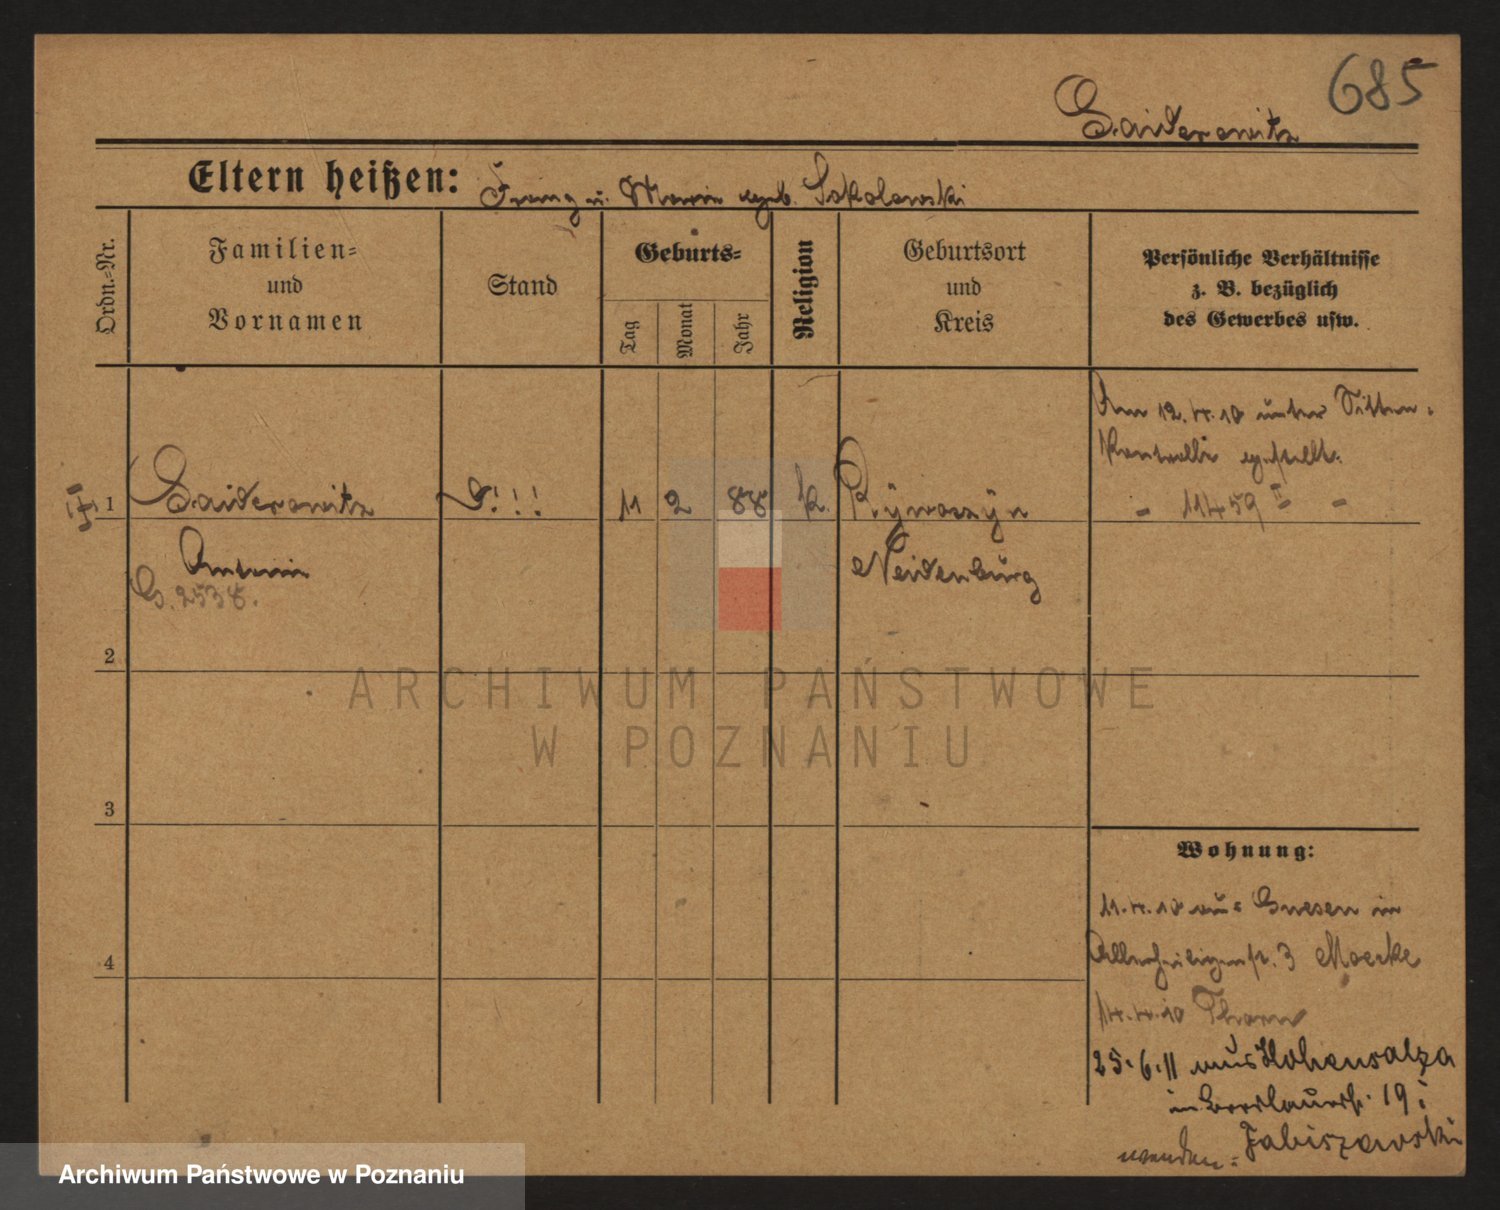 685
Saiderowitz
Eltern heißen: Franz u. Marie geb. Sokolowski
Ordn.-Nr.
Familien-
und
Vornamen
Stand
Geburts-
Tag
Monat
Jahr
Religion
Geburtsort
und
Kreis
Persönliche Verhältnisse
z. B. bezüglich
des Gewerbes usw.
Am 12.4.10 unter Sitten-
Kontrolle gestellt.
- 11459 II -
1
Saiderowitz
S!!!
11 2 88
k.
Antonie
Neidenburg
G. 2538.
2
3
4
Wohnung:
11.4.10 aus Gnesen in
Allerheiligenstr. 3 Moecke
14.4.10 Thorn
25.6.11 aus Hohensalza
in Breslauerstr. 19 :
Jabiszewski
wenden:
ARCHIWUM PAŃSTWOWE
W POZNANIU
Archiwum Państwowe w Poznaniu